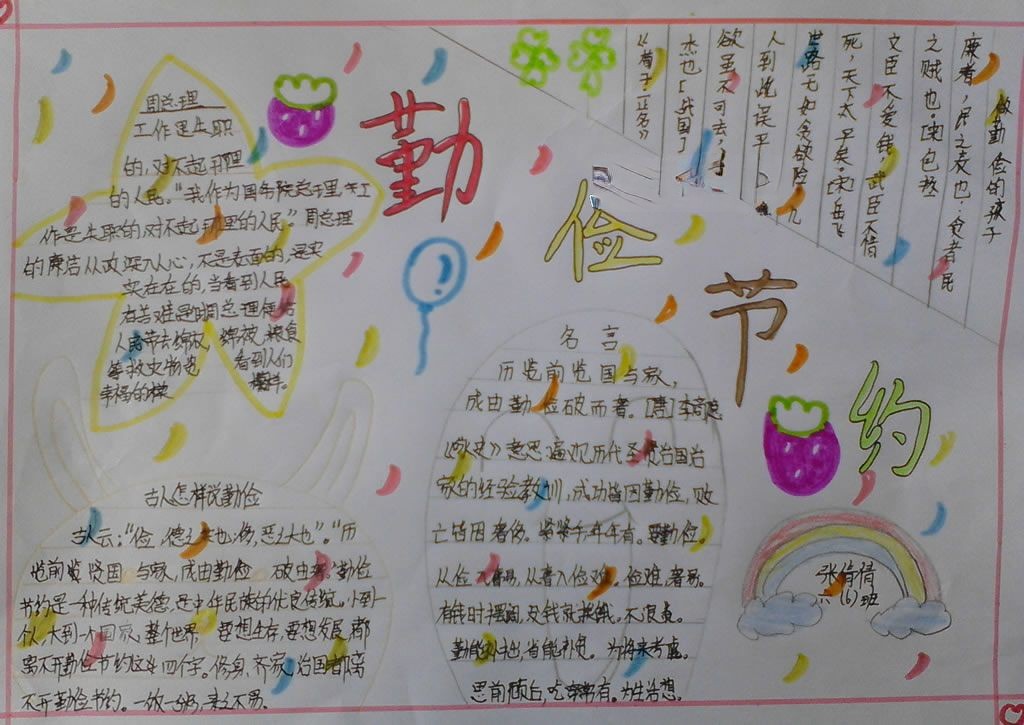 周总理
工作是失职
的,对不起那里
的人民。“我作为国务院总理,
作是失职的对不起那里的人民”周总理
的廉洁从政深入人心,不是表面的,是实
实在在的,当看到人民
有苦难是时周总理便给
人民带去棉衣,棉被,粮食
等救灾物资 看到人们
幸福的
勤
俭
节
约
做勤俭的孩子
廉者,民之表也;贪者民
之贼也。[宋]包拯
文臣不爱钱,武臣不惜
死,天下太平矣。[宋]岳飞
世路无如贪欲险,几
人到此误平
欲虽不可去,
杰也[战国]
《荀子·正名》
名言
历览前览国与家,
成由勤俭破而奢。[唐]李商隐
《咏史》意思:遍观历代圣贤治国治
家的经验教训,成功皆因勤俭,败
亡皆因奢侈。 年年有。要勤俭。
从俭入奢易,从奢入俭难,俭难,奢易。
有钱时 没钱就挨饿。不浪费。
勤能补拙,省能补完。为将来考虑。
思前顾后,吃穿常有。为生活想。
古人怎样说勤俭
古人云:“俭,德之共也;侈,恶之大也”。“历
览前览贤国与家,成由勤俭破由奢。”勤俭
节约是一种传统美德,是中华民族的优良传统。小到一
个人,大到一个国家、整个世界 要想生存,要想发展,都
离不开勤俭节约这 四个字。修身、齐家、治国都离
不开勤俭节约。一饭一粥,来之不易。
张倩倩
六(6)班